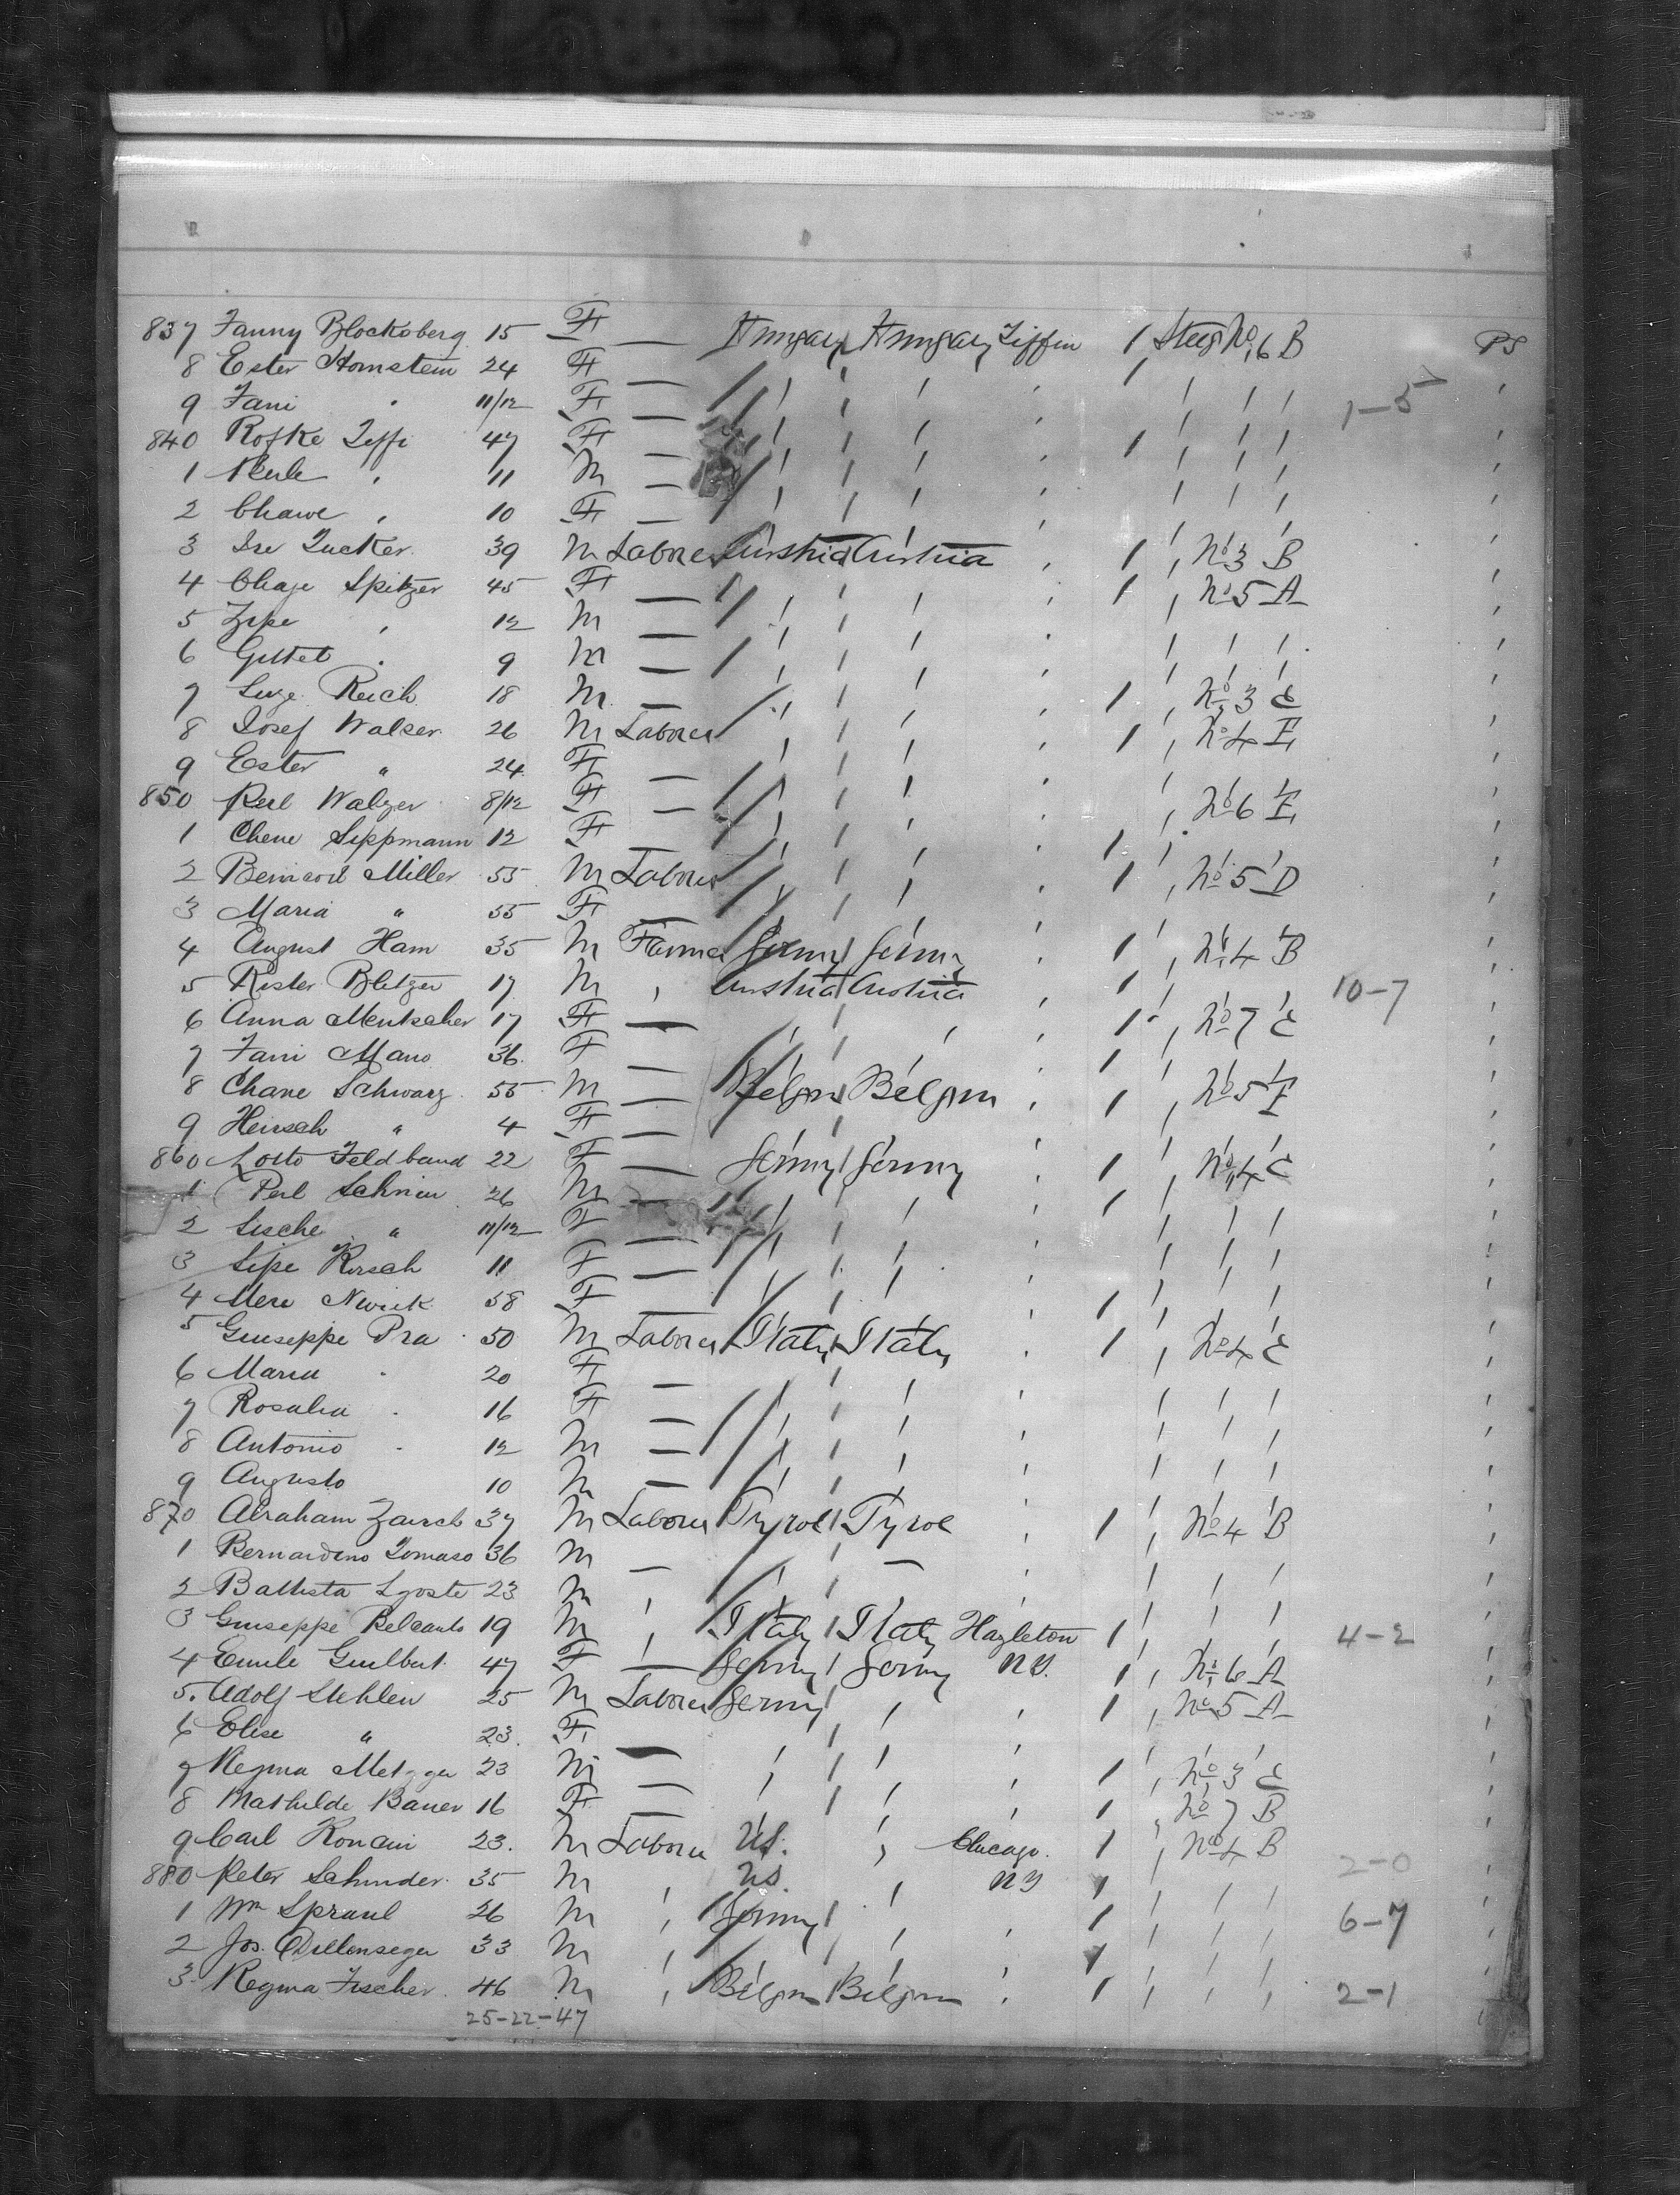 837 Fanny Blocksberg 15 F — Hungary Hungary Tiffin 1 Steeg No 6 B PS
8 Ester Hornstein 24 F — " " " 1 " " "
9 Fani " 11/12 F — " " " " " " 1-5
840 Rofke Zeffi 47 F — " " " 1 " " "
1 " 11 M — " " " " " "
2 Chawe " 10 F — " " " " " "
3 Ire Zucker 39 M Laborer Austria Austria " 1 " No 3 B
4 Chaje Spitzer 45 F — " " " 1 " No 5 A
5 " 12 M — " " " " " "
6 Gittel " 9 M — " " " " " "
7 Reich 18 M — " " " 1 " No 3 C
8 Josef Walser 26 M Laborer " " " 1 " No 4 E
9 Ester " 24 F — " " "
850 Perl Walzer 8/12 F — " " " " No 6 E
1 Chene Lippmann 12 F — " " " 1 "
2 Bernard Miller 55 M Laborer " " " 1 " No 5 D
3 Maria " 55 F — " " "
4 August Ham 35 M Farmer Germy Germy " 1 " No 4 B
5 Blitzer 17 M " Austria Austria " 1 " 10-7
6 Anna Mentscher 17 F — " " " 1 " No 7 C
7 Fani Mano 36 F — " " " 1 "
8 Chane Schwarz 55 M — Belgm Belgm " 1 " No 5 E
9 Heirsch " 4 F —
860 Lotto Feldband 22 F — Germy Germy " 1 " No 4 C
1 Perl 26 M — " " " 1 " " "
2 Lische " 11/12 F — " " " " " "
3 Lipe Kirsch 11 F — " " " " " "
4 Mere 58 F — " " " 1 " " "
5 Giuseppe Pra 50 M Laborer Italy Italy " 1 " No 4 C
6 Maria " 20 F — " " " " " "
7 Rosalia " 16 F — " " " " " "
8 Antonio " 12 M — " " " " " "
9 Augusto 10 M — " " " " " "
870 Abraham 37 M Laborer Tyrol Tyrol " 1 " No 4 B
1 Bernardino Tomaso 36 M — " — " " " "
2 Battista 23 M " " " " " " "
3 Giuseppe Belcanto 19 M " Italy Italy Hazleton 1 " " " 4-2
4 Emile Guilbert 47 F — Germy Germy NY. 1 " No 6 A
5. Adolf Stehlen 25 M Laborer Germy " " 1 " No 5 A
6 Elise " 23. F — " " "
7 Regina Metzger 23 M — " " " 1 " No 3 C
8 Mathilde Bauer 16 F — " " " 1 " No 7 B
9 Carl Romain 23. M Laborer US. " Chicago. 1 " No 4 B 2-0
880 Peter Schnider 35 M " US. " NY 1 " " "
1 Wm Spraul 26 M " Germy " " 1 " " " 6-7
2 Jos. Dillenseger 33 M " " " " 1 " " "
3. Regina Fischer 46 M " Belgm Belgm " 1 " " " 2-1
25-22-47